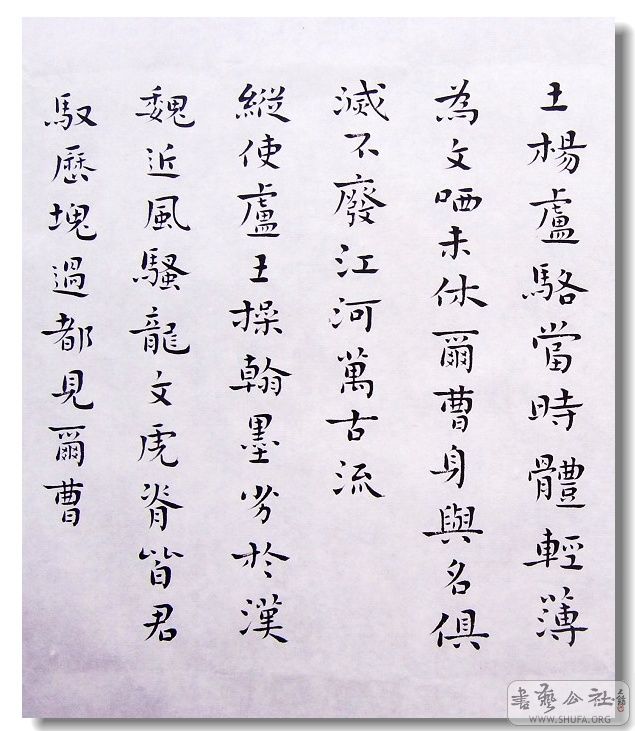 王楊盧駱當時體輕薄
為文哂未休爾曹身與名俱
滅不廢江河萬古流
縱使盧王操翰墨劣於漢
魏近風騷龍文虎脊皆君
馭歷塊過都見爾曹
書藝公社
WWW.SHUFA.ORG